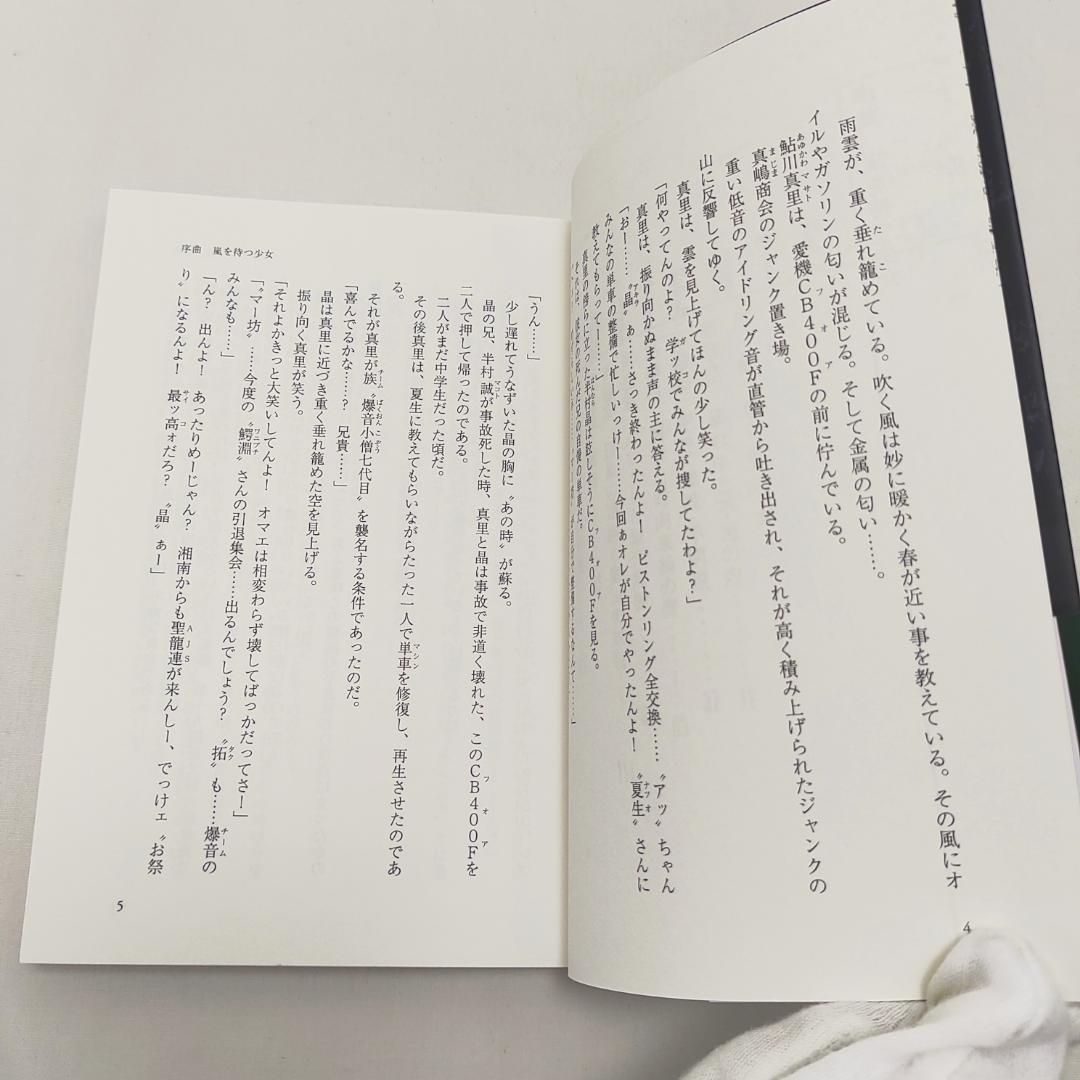 雨雲が、重く垂れ籠めている。吹く風は妙に暖かく春が近い事を教えている。その風にオ
イルやガソリンの匂いが混じる。そして金属の匂い……。
鮎川真里は、愛機CB400Fの前に佇んでいる。
真嶋商会のジャンク置き場。
重い低音のアイドリング音が直管から吐き出され、それが高く積み上げられたジャンクの
山に反響してゆく。
真里は、雲を見上げてほんの少し笑った。
「何やってんのよ？　学ッ校でみんなが捜してたわよ？」
真里は、振り向かぬまま声の主に答える。
「おー……〝晶〟ぁ……さっき終わったんよ！　ピストンリング全交換……〝アッ〟ちゃん
みんなの単車の整備で忙しいっけー……今回ぁオレが自分でやったんよ！　〝夏生〟さんに
教えてもらって！……」
真里の傍らに立った半村晶は眩しそうにCB400Fを見る。
4
序曲　嵐を待つ少女
「うん……」
少し遅れてうなずいた晶の胸に〝あの時〟が蘇る。
晶の兄、半村誠が事故死した時、真里と晶は事故で非道く壊れた、このCB400Fを
二人で押して帰ったのである。
二人がまだ中学生だった頃だ。
その後真里は、夏生に教えてもらいながらたった一人で単車を修復し、再生させたのであ
る。
それが真里が族〝爆音小僧七代目〟を襲名する条件であったのだ。
「喜んでるかな……？　兄貴……」
晶は真里に近づき重く垂れ籠めた空を見上げる。
振り向く真里が笑う。
「それよかきっと大笑いしてんよ！　オマエは相変わらず壊してばっかだってさ！」
「〝マー坊〟……今度の〝鰐淵〟さんの引退集会……出るんでしょう？　〝拓〟も……爆音の
みんなも……」
「ん？　出んよ！　あったりめーじゃん？　湘南からも聖龍連が来んしー、でっけェ〝お祭
り〟になるんよ！　最ッ高ォだろ？　〝晶〟ぁー」
5